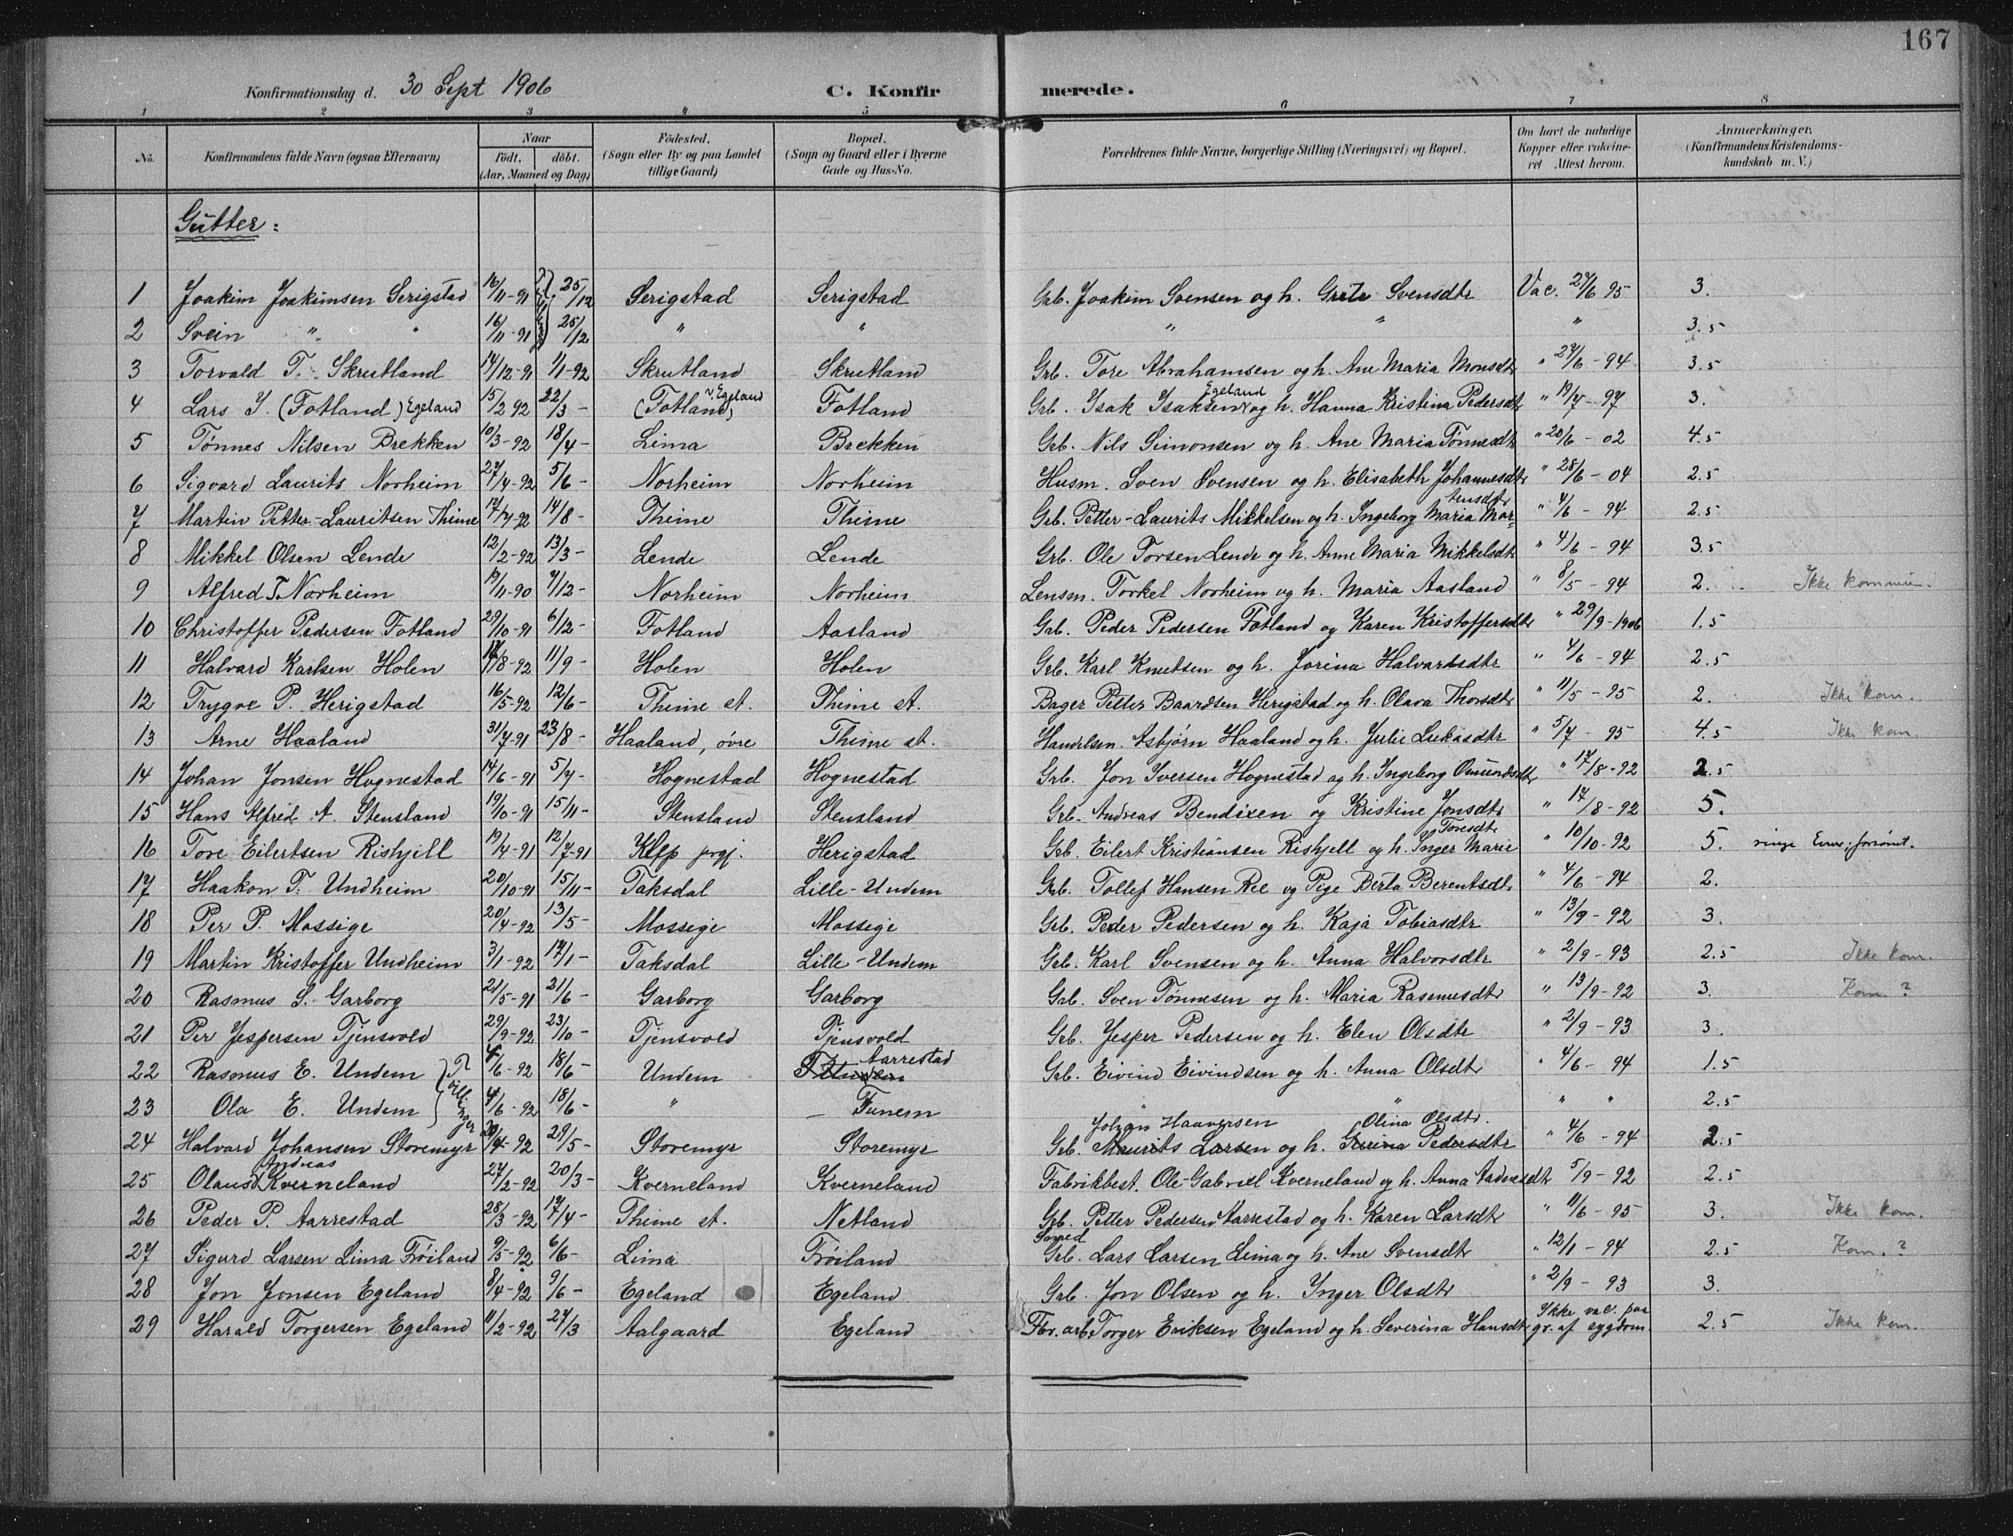 167
Konfirmationsdag d. 30 Sept 1906 C. Konfirmerede.
1 2 3 4 5 6 7 8
No. Konfirmandens fulde Navn (ogsaa Efternavn) Naar født, døbt. (Aar, Maaned og Dag) Fødested. (Sogn eller By og paa Landet tillige Gaard) Bopæl. (Sogn og Gaard eller i Byerne Gade og Hus-No. Forældrenes fulde Navne, borgerlige Stilling (Næringsvei) og Bopæl. Om havt de naturlige Kopper eller vaccineret Attest herom. Anmærkninger. (Konfirmandens Kristendomskundskab m. V.)
Gutter:
1 Joakim Joakimsen Serigstad 16/11-91 25/12 Serigstad Serigstad Grb. Joakim Svensen og h. Grete Svensdtr Vac. 27/6 95 3.
2 Svein " " 16/11-91 25/12 " " " " " 3.5
3 Torvald T. Skrutland 14/12-91 1/1-92 Skrutland Skrutland Grb. Tore Abrahamsen og h. Ane Maria Monsdtr " 27/6-94 3.5
4 Lars I. (Fotland) Egeland 15/2 92 22/3- (Fotland) v. Egeland Fotland Grb. Isak Isaksen Egeland og h. Hanna Kristina Pedersdtr " 19/7-97 3.
5 Tønnes Nilsen Brekken 10/3-92 18/4- Lima Brekken Grb. Nils Simonsen og h. Ane Maria Tønnesdtr " 20/6-02 4.5
6 Sigvard Laurits Norheim 27/4-92 5/6- Norheim Norheim Husm. Sven Svensen og h. Elisabeth Johannesdtr " 28/6-04 2.5
7 Martin Petter-Lauritsen Thime 17/7-92 14/8- Thime Thime Grb. Petter-Laurits Mikkelsen og h. Ingeborg Maria Mortensdtr " 4/6-94 2.5
8 Mikkel Olsen Lende 12/2-92 13/3- Lende Lende Grb. Ole Torsen Lende og h. Anne Maria Mikkelsdtr " 4/6-94 3.5
9 Alfred T Norheim 19/11-90 7/12- Norheim Norheim Lensm. Torkel Norheim og h. Maria Aasland " 8/5-94 2. Ikke kommun.
10 Christoffer Pedersen Fotland 29/10-91 6/12- Fotland Aasland Grb. Peder Pedersen Fotland og Karen Kristoffersdtr " 29/9-1906 1.5
11 Halvard Karlsen Holen 14/8-92 11/9- Holen Holen Grb. Karl Knutsen og h. Jorina Halvardsdtr " 4/6-94 2.5
12 Trygve P. Herigstad 16/5-92 12/6- Thime st. Thime st. Bager Petter Baardsen Herigstad og h. Olava Thorsdtr " 11/5-95 2. Ikke kom.
13 Arne Haaland 31/7-91 23/8- Haaland, øvre Thime st. Handelsm. Asbjørn Haaland og h. Julie Lukasdtr " 5/7-95 4.5 Ikke kom.
14 Johan Jonsen Hognestad 14/6-91 5/7- Hognestad Hognestad Grb. Jon Iversen Hognestad og h. Ingeborg Osmundsdtr " 17/8-92 2.5
15 Hans Alfred A. Stensland 19/10-91 15/11- Stensland Stensland Grb. Andreas Bendixen og Kristine Jonsdtr " 17/8-92 5.
16 Tore Eilertsen Rishjell 19/4-91 12/7-91 Klep prgj. Herigstad Grb. Eilert Kristiansen Rishjell og h. Inger Marie Toresdtr " 10/10-92 5. ringe
17 Haakon T. Undheim 20/10-91 15/11- Taksdal Lille-Undem Grb. Tollef Hansen Ree og Pige Berta Berentsdtr " 4/6-94 2.
18 Per P. Mossige 20/4-92 13/5- Mossige Mossige Grb. Peder Pedersen og h. Kaja Tobiasdtr " 13/9-92 3.
19 Martin Kristoffer Undheim 3/1-92 17/1- Taksdal Lille-Undem Grb. Karl Svensen og h. Anna Halvorsdtr " 2/9-93 2.5 Ikke kom.
20 Rasmus S. Garborg 21/5-91 21/6- Garborg Garborg Grb. Sven Tønnesen og h. Maria Rasmusdtr " 13/9-92 3. Kom ?
21 Per Jespersen Tjensvold 29/9-92 23/10- Tjensvold Tjensvold Grb. Jesper Pedersen og h. Elen Olsdtr " 2/9-93 3.
22 Rasmus E. Undem Tvillinger 4/6-92 18/6- Undem Aarrestad Grb. Eivind Eivindsen og h. Anna Olsdtr " 4/6-94 1.5
23 Ola E. Undem 4/6-92 18/6- " Tunem " " " " 2.5
24 Halvard Johansen Storemyr 20/4-92 29/5- Storemyr Storemyr Grb. Johan Haaversen Maurits Larsen og h. Olina Olsdtr. Pedersdtr " 4/6-94 2.5
25 Olaus Andreas Kverneland 27/2-92 20/3- Kverneland Kverneland Fabrikbest. Ole-Gabriel Kverneland og h. Anna Aadnesdtr " 5/9-92 2.5
26 Peder P. Aarrestad 28/3-92 17/4- Thime st. Netland Grb. Petter Pedersen Aarrestad og h. Karen Larsdtr " 11/6-95 3. Ikke kom.
27 Sigurd Larsen Lima Frøiland 9/5-92 6/6- Lima Frøiland Grb. Lars Larsen Lima og h. Ane Svensdtr " 12/1-94 2.5 Kom. ?
28 Jon Jonsen Egeland 8/4-92 9/6- Egeland Egeland Grb. Jon Olsen og h. Inger Olsdtr " 2/9-93 3.
29 Harald Torgersen Egeland 11/2-92 27/3 Aalgaard Egeland Fbr. arb. Torger Eriksen Egeland og h. Severina Hansdtr Ikke vac. paa gr. af sygdom 2.5 Ikke kom.